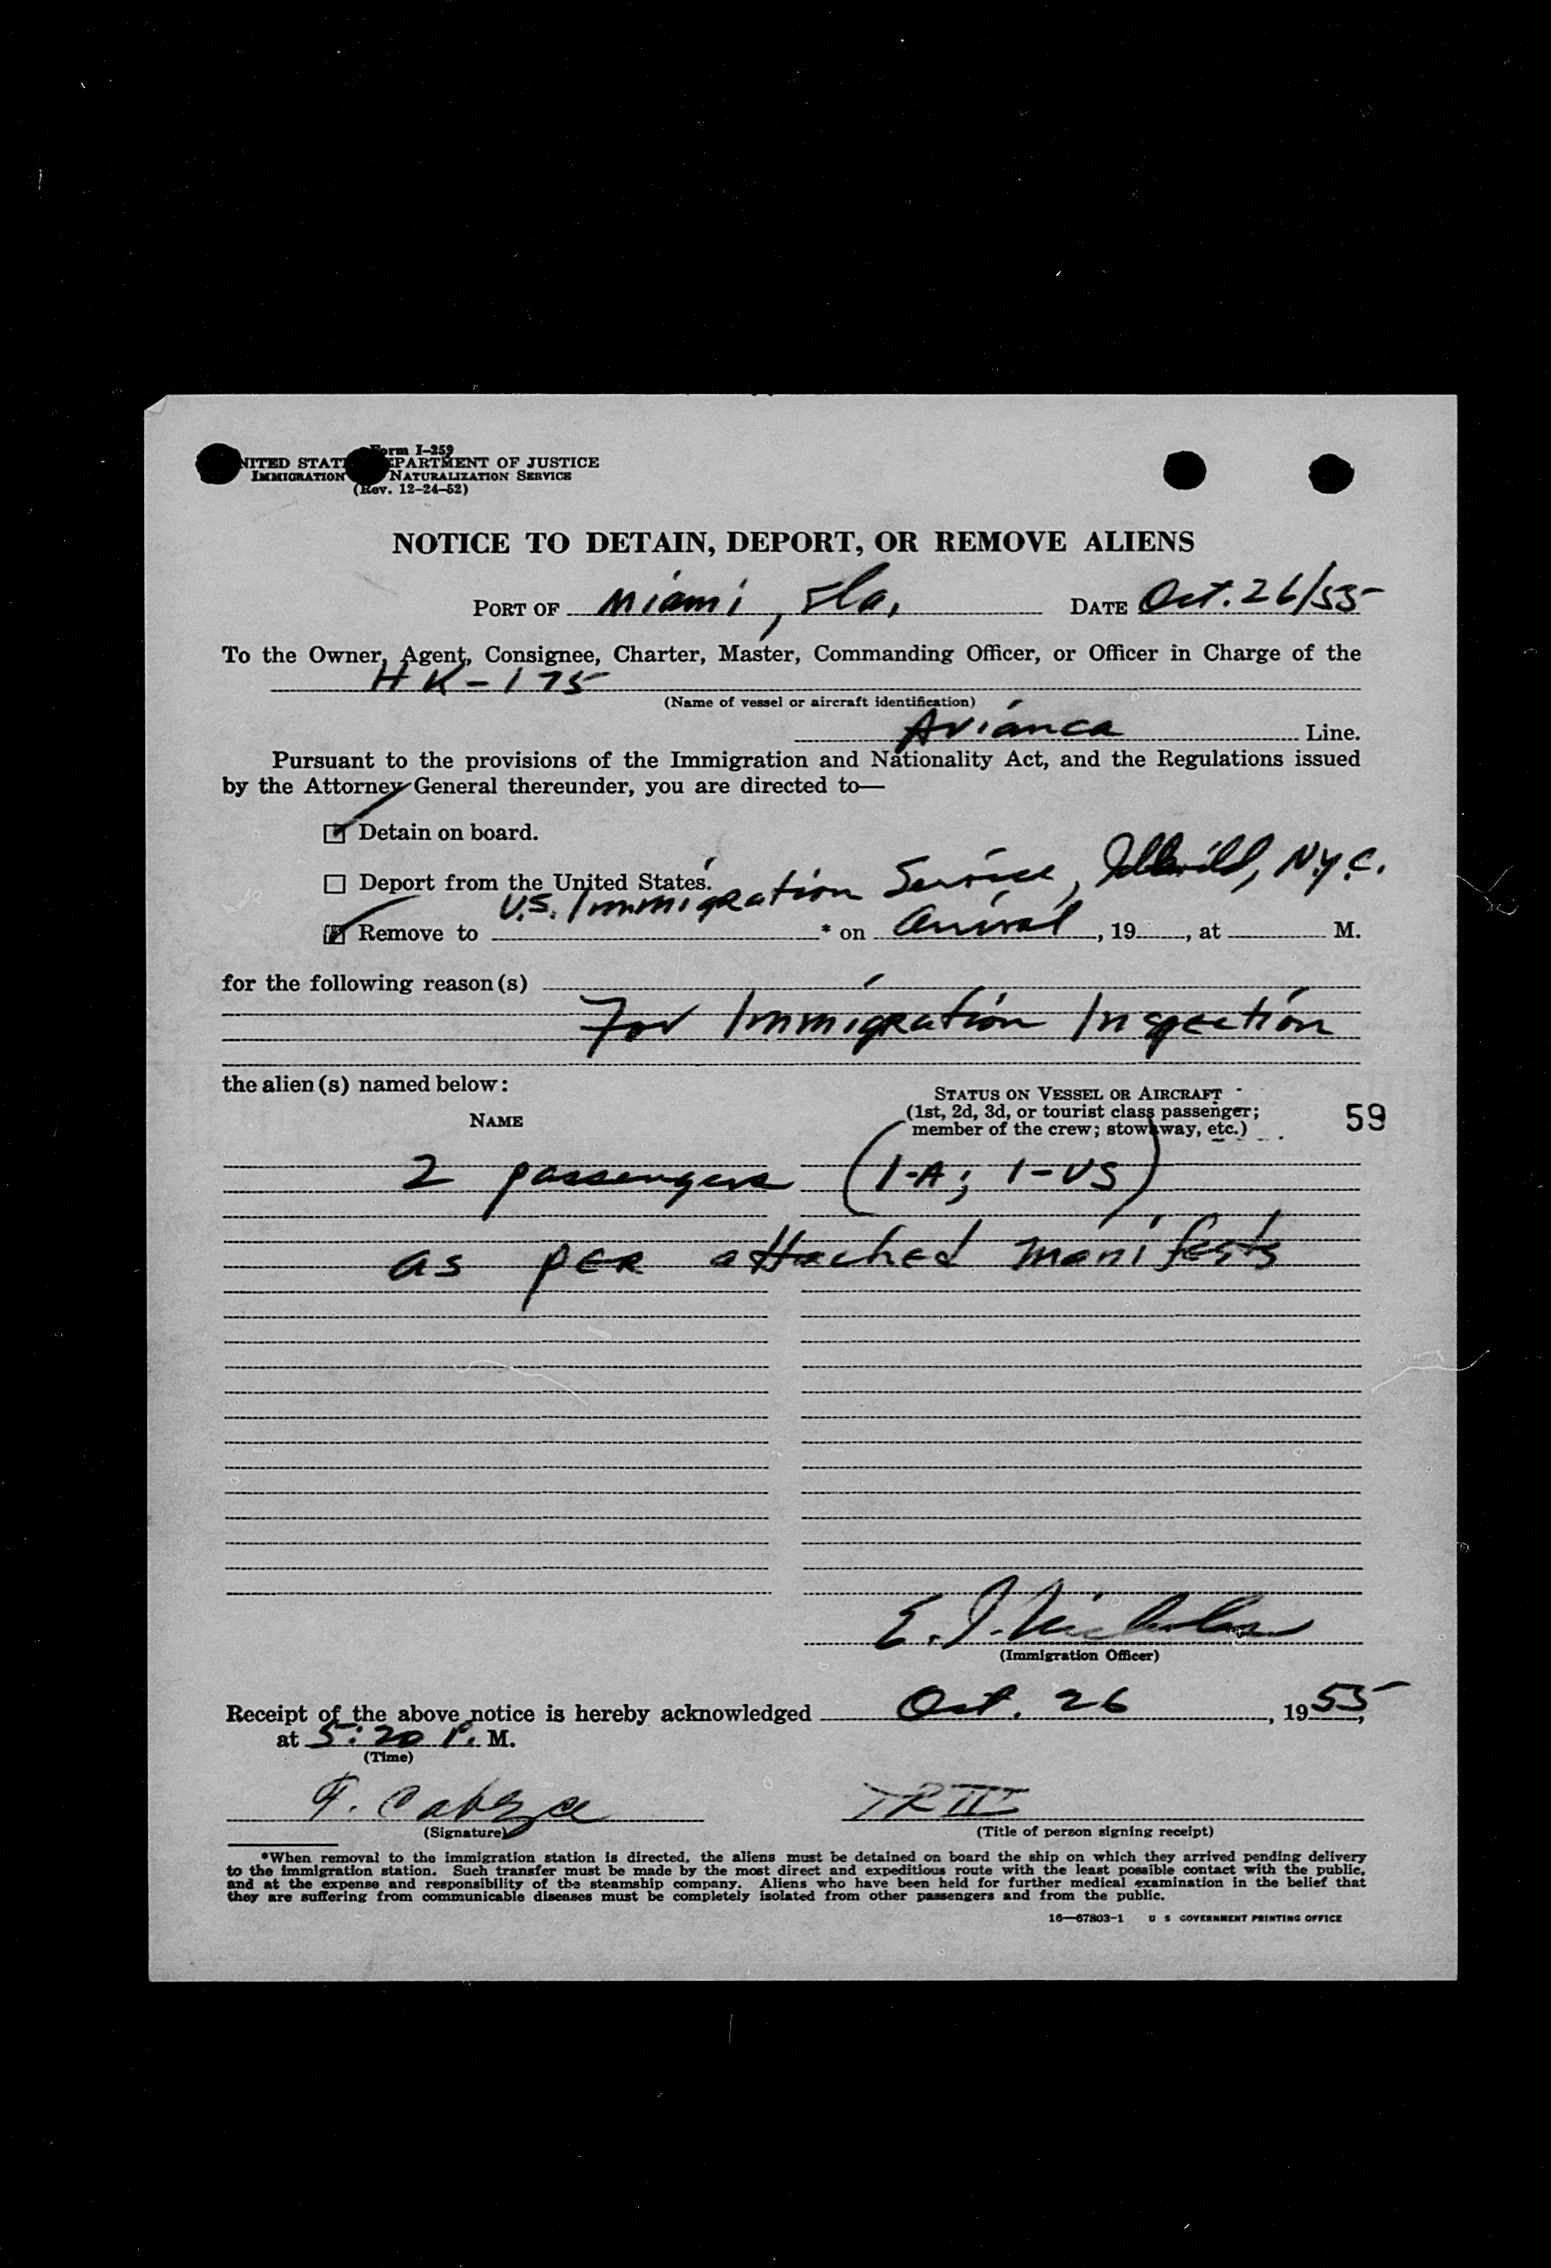 Form I-259
UNITED STATES DEPARTMENT OF JUSTICE
IMMIGRATION NATURALIZATION SERVICE
(Rev. 12-24-52)
NOTICE TO DETAIN, DEPORT, OR REMOVE ALIENS
PORT OF Miami, Fla. DATE Oct. 26/55
To the Owner, Agent, Consignee, Charter, Master, Commanding Officer, or Officer in Charge of the
HK-175
(Name of vessel or aircraft identification)
Avianca Line.
Pursuant to the provisions of the Immigration and Nationality Act, and the Regulations issued
by the Attorney General thereunder, you are directed to—
Detain on board.
Deport from the United States.
U.S. Immigration Service, Idlewild, N.Y.C.
Remove to * on Arrival, 19 , at M.
for the following reason(s)
For Immigration Inspection
the alien(s) named below:
NAME
STATUS ON VESSEL OR AIRCRAFT
(1st, 2d, 3d, or tourist class passenger;
member of the crew; stowaway, etc.)
59
2 passengers (1-A; 1-US)
as per attached manifests
E. J. Nicholas
(Immigration Officer)
Receipt of the above notice is hereby acknowledged Oct. 26, 1955,
at 5:20 P. M.
(Time)
F.
(Signature)
(Title of person signing receipt)
*When removal to the immigration station is directed, the aliens must be detained on board the ship on which they arrived pending delivery
to the immigration station. Such transfer must be made by the most direct and expeditious route with the least possible contact with the public,
and at the expense and responsibility of the steamship company. Aliens who have been held for further medical examination in the belief that
they are suffering from communicable diseases must be completely isolated from other passengers and from the public.
16—67803-1 U S GOVERNMENT PRINTING OFFICE